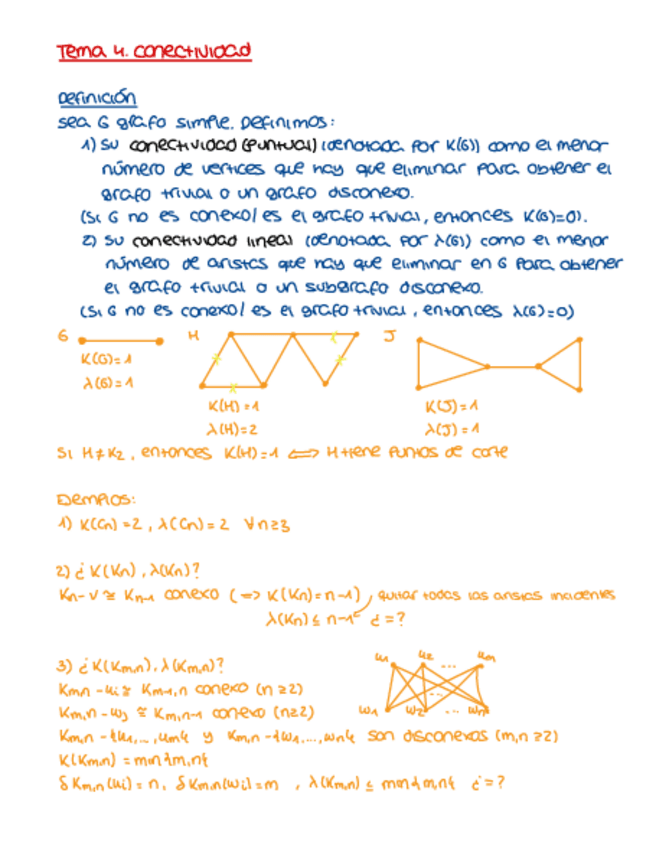 Tema 4. conectividad
Definición
sea G grafo simple. Definimos:
1) su conectividad (puntual) (denotada por K(G)) como el menor
número de vertices que hay que eliminar para obtener el
grafo trivial o un grafo disconexo.
(si G no es conexo/es el grafo trivial, entonces K(G)=0).
2) su conectividad lineal (denotada por λ(G)) como el menor
número de aristas que hay que eliminar en G para obtener
el grafo trivial o un subgrafo disconexo.
(si G no es conexo/es el grafo trivial, entonces λ(G)=0)
G H J
K(G)=1
λ(G)=1
K(H)=1
λ(H)=2
K(J)=1
λ(J)=1
Si H≠K₂, entonces K(H)=1 ⟺ H tiene puntos de corte
Ejemplos:
1) K(Cn)=2, λ(Cn)=2 ∀n≥3
2) ¿K(Kn), λ(Kn)?
Kn-v ≅ Kn-1 conexo (⇒ K(Kn)=n-1) , quitar todas las aristas incidentes
λ(Kn) ≤ n-1 ¿=?
3) ¿K(Km,n), λ(Km,n)?
u1 u2 ... um
Km,n - ui ≅ Km-1,n conexo (n≥2)
Km,n - wj ≅ Km,n-1 conexo (n≥2)
w1 w2 ... wn
Km,n - {u1,..., um} y Km,n - {w1,..., wn} son disconexos (m,n≥2)
K(Km,n) = min{m,n}
δKm,n(ui) = n, δKm,n(wi) = m , λ(Km,n) ≤ min{m,n} ¿=?